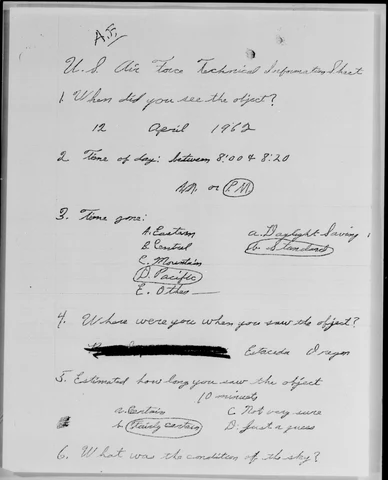 A.F.
U.S. Air Force Technical Information Sheet
1. When did you see the object?
12 April 1962
2 Time of day: between 8:00 & 8:20
A.M. or P.M.
3. Time zone:
A. Eastern a. Daylight Saving
B. Central b. Standard
C. Mountain
D. Pacific
E. Other
4. Where were you when you saw the object?
Estacada Oregon
5. Estimated how long you saw the object
10 minutes
a. Certain C. Not very sure
b. Fairly certain D. Just a guess
6. What was the condition of the sky?